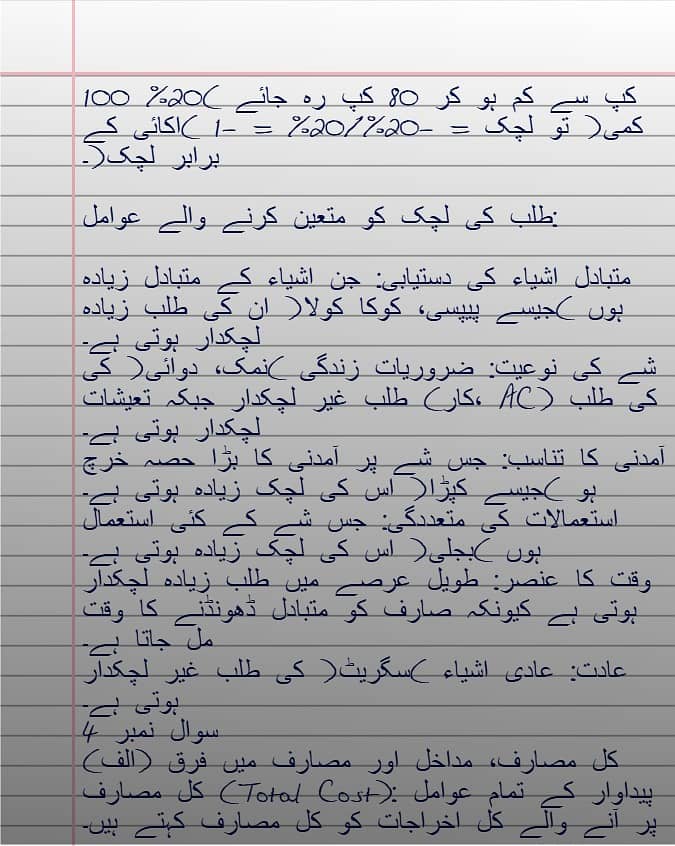 کپ سے کم ہو کر 80 کپ رہ جائے )20% 100
کمی( تو لچک = -20%/20% = -1 )اکائی کے
برابر لچک(۔
طلب کی لچک کو متعین کرنے والے عوامل:
متبادل اشیاء کی دستیابی: جن اشیاء کے متبادل زیادہ
ہوں )جیسے پیپسی، کوکا کولا( ان کی طلب زیادہ
لچکدار ہوتی ہے۔
شے کی نوعیت: ضروریات زندگی )نمک، دوائی( کی
کی طلب (AC ،کار) طلب غیر لچکدار جبکہ تعیشات
لچکدار ہوتی ہے۔
آمدنی کا تناسب: جس شے پر آمدنی کا بڑا حصہ خرچ
ہو )جیسے کپڑا( اس کی لچک زیادہ ہوتی ہے۔
استعمالات کی متعددگی: جس شے کے کئی استعمال
ہوں )بجلی( اس کی لچک زیادہ ہوتی ہے۔
وقت کا عنصر: طویل عرصے میں طلب زیادہ لچکدار
ہوتی ہے کیونکہ صارف کو متبادل ڈھونڈنے کا وقت
مل جاتا ہے۔
عادت: عادی اشیاء )سگریٹ( کی طلب غیر لچکدار
ہوتی ہے۔
سوال نمبر 4
کل مصارف، مداخل اور مصارف میں فرق (الف)
پیداوار کے تمام عوامل :(Total Cost) کل مصارف
پر آنے والے کل اخراجات کو کل مصارف کہتے ہیں۔